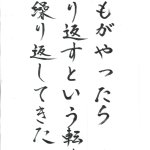 もがやったら
り返すという転
繰り返してきた